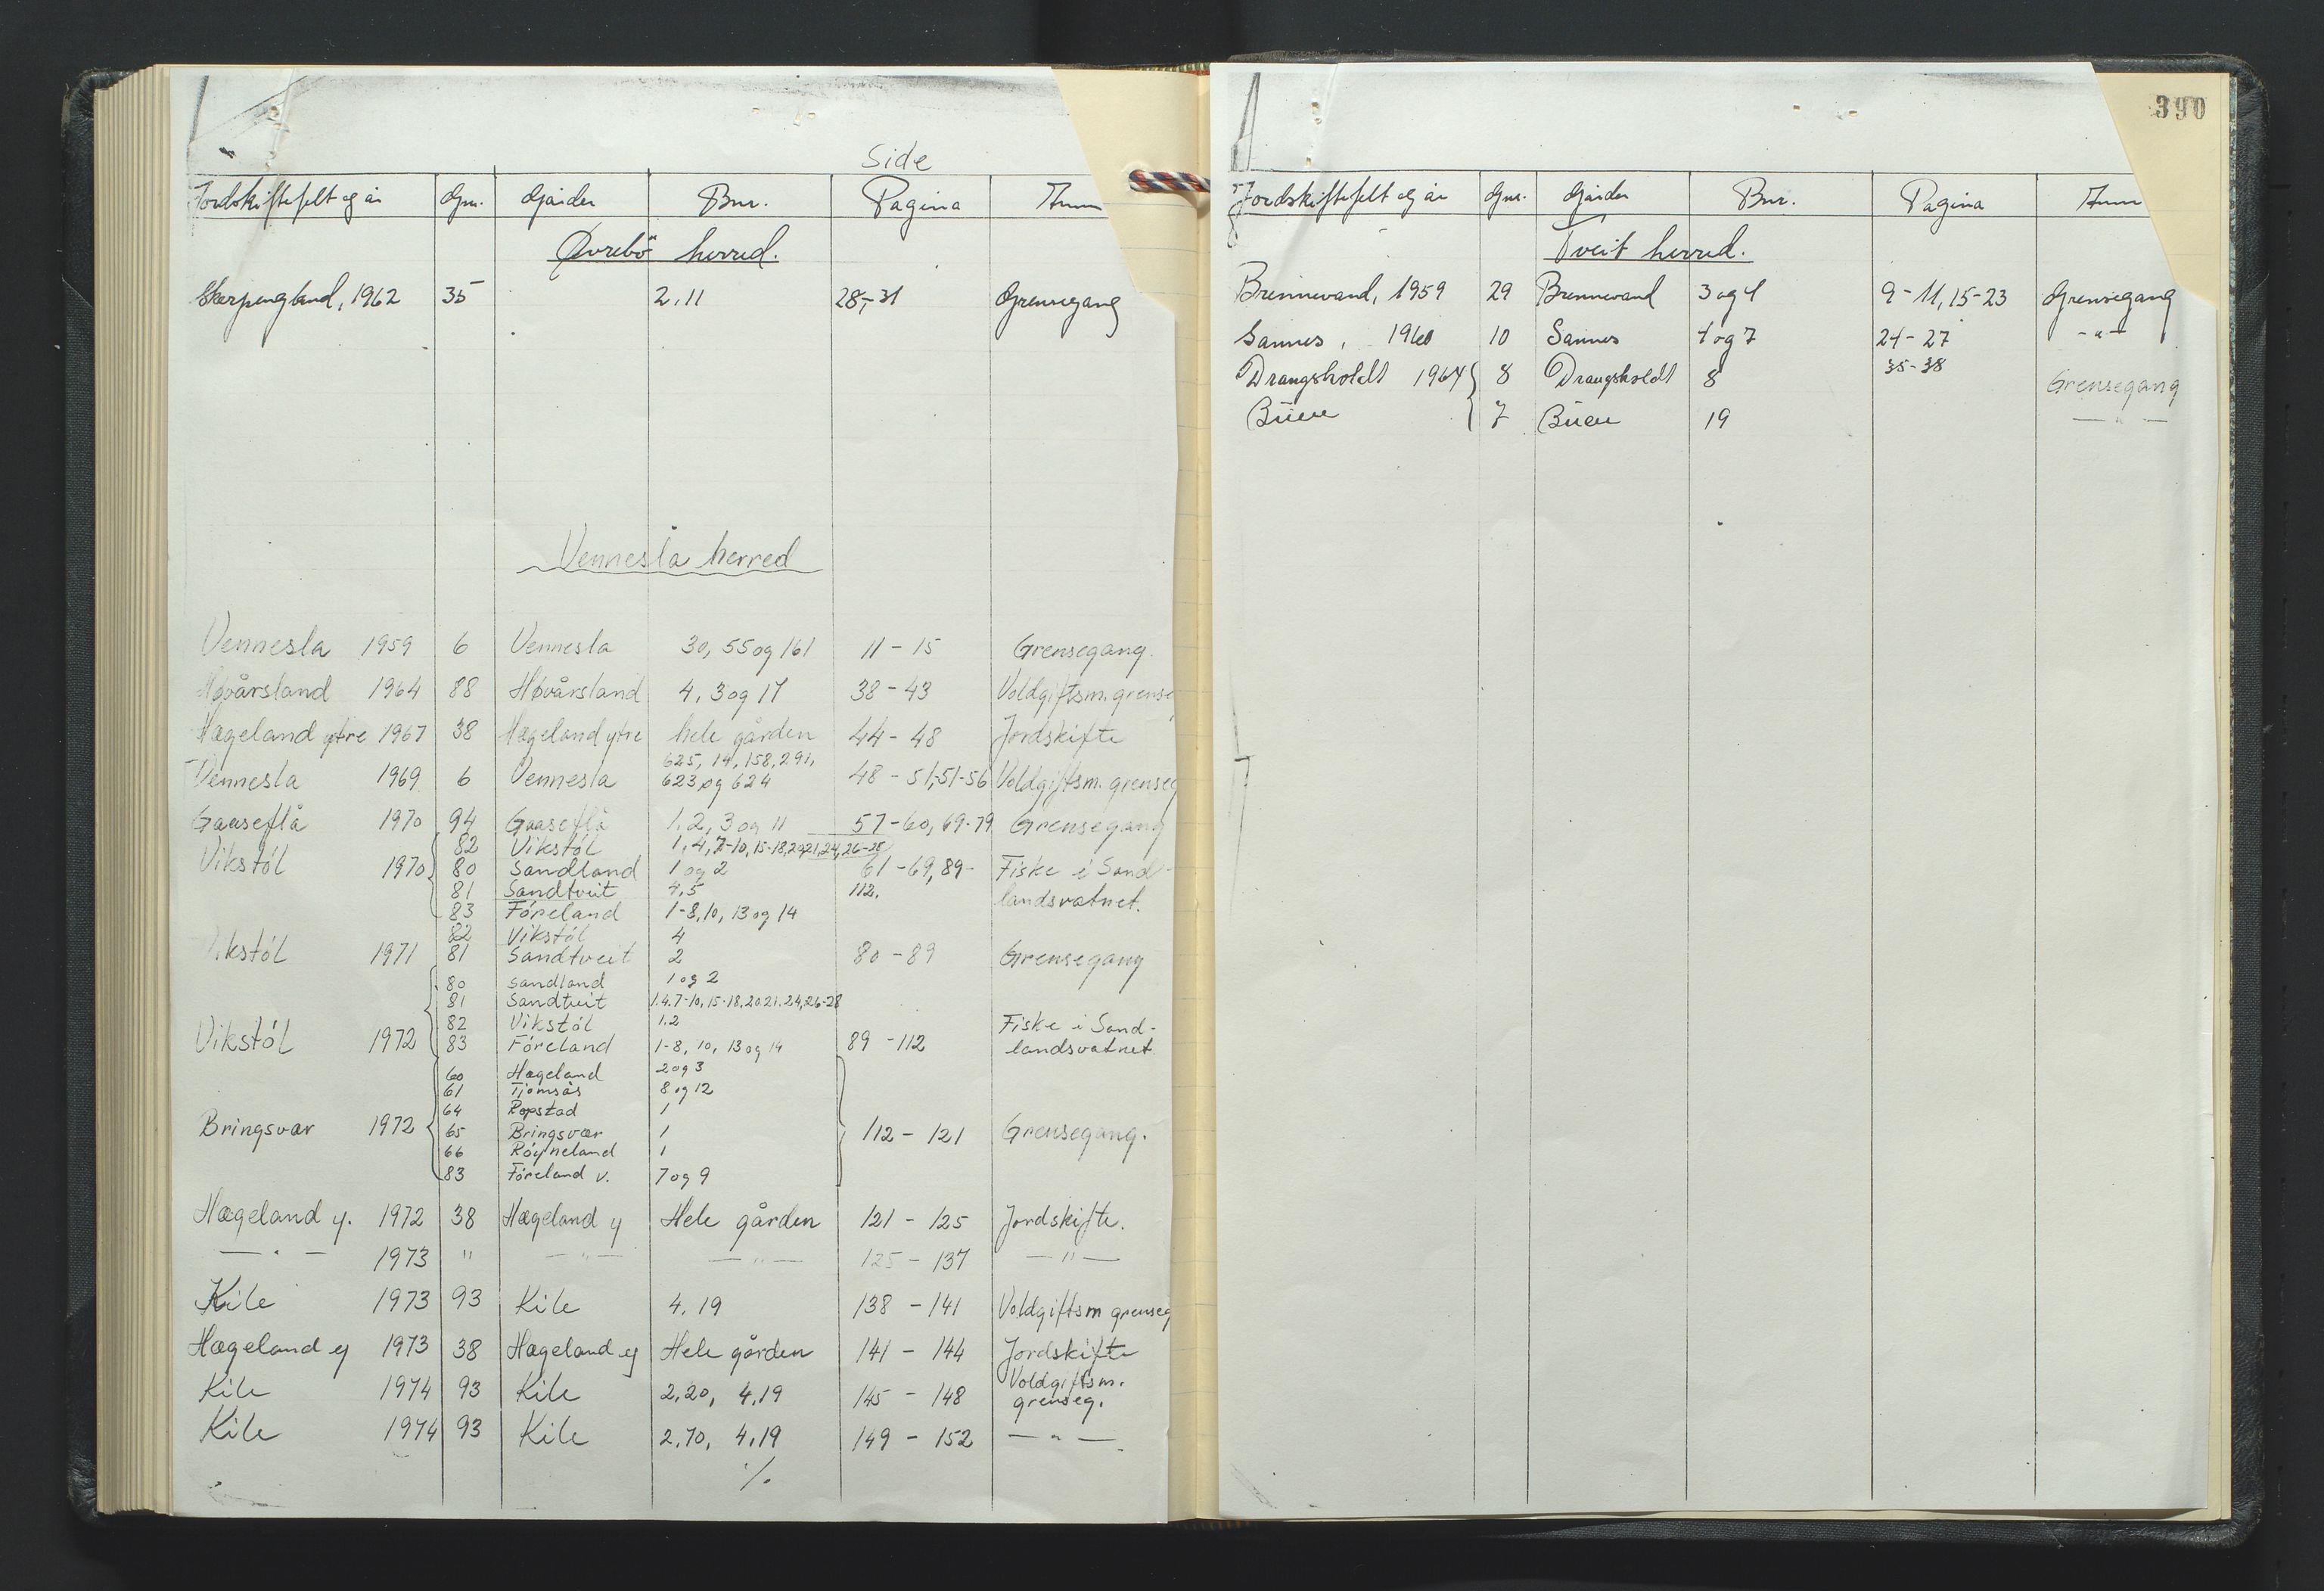 Side
Jordskiftefelt og år Gnr. Gårder Bnr. Pagina Anm
Øvrebö herred.
Skarpengland, 1962 35 2, 11 28-31 Grensegang
Vennesla herred
Vennesla 1959 6 Vennesla 30, 55 og 161 11 - 15 Grensegang.
Høvårsland 1964 88 Høvårsland 4, 3 og 17 38 - 43 Voldgiftsm. grense
Hægeland ytre 1967 38 Hægeland ytre hele gården 44 - 48 Jordskifte
625, 14, 158, 291,
Vennesla 1969 6 Vennesla 623 og 624 48 - 51, 51-56 Voldgiftsm. grenseg
Gaaseflå 1970 94 Gaaseflå 1, 2, 3 og 11 57-60, 69-79 Grensegang
82 Vikstöl 1, 4, 7-10, 15-18, 20, 21, 24, 26-28
Vikstöl 1970 80 Sandland 1 og 2 61-69, 89- Fiske i Sand-
81 Sandtveit 4, 5 112. landsvatnet.
83 Föreland 1-8, 10, 13 og 14
82 Vikstöl 4
Vikstöl 1971 81 Sandtveit 2 80 - 89 Grensegang
80 Sandland 1 og 2
81 Sandtveit 1.4.7-10, 15-18, 20.21.24, 26-28
82 Vikstöl 1.2 Fiske i Sand-
Vikstöl 1972 83 Föreland 1-8, 10, 13 og 14 89 - 112 landsvatnet
60 Hægeland 2 og 3
61 Tjomsås 8 og 12
64 Ropstad 1
Bringsvær 1972 65 Bringsvær 1 112 - 121 Grensegang.
66 Röyneland 1
83 Föreland v. 7 og 9
Hægeland y. 1972 38 Hægeland y Hele gården 121 - 125 Jordskifte.
— " — 1973 " — " — — " — 125 - 137 — " —
Kile 1973 93 Kile 4, 19 138 - 141 Voldgiftsm grenseg
Hægeland y 1973 38 Hægeland y Hele gården 141 - 144 Jordskifte
Kile 1974 93 Kile 2,20, 4,19 145 - 148 Voldgiftsm.
grenseg.
Kile 1974 93 Kile 2,70, 4,19 149 - 152 — " —
./.
390
Jordskiftefelt og år Gnr. Gårder Bnr. Pagina Anm
Tveit herred.
Brennevand, 1959 29 Brennevand 3 og 4 9-11, 15-23 Grensegang
Sannes, 1960 10 Sannes 1 og 7 24-27 - " -
Drangsholdt 1964 8 Drangsholdt 8 35-38 Grensegang
Büen 7 Büen 19 — " —